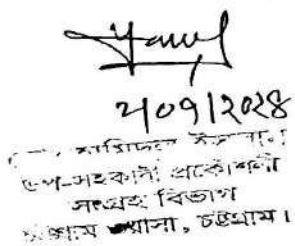 ২/০৭/২০২৪
উপ-সহকারী প্রকৌশলী
সংগ্রহ বিভাগ
চট্টগ্রাম ওয়াসা, চট্টগ্রাম।